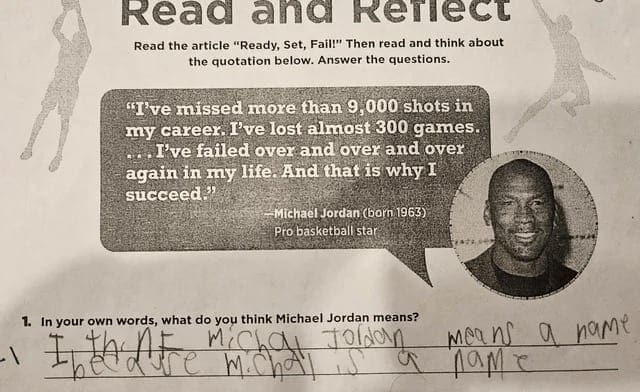 Read and Reflect
Read the article “Ready, Set, Fail!” Then read and think about
the quotation below. Answer the questions.
“I’ve missed more than 9,000 shots in
my career. I’ve lost almost 300 games.
. . . I’ve failed over and over and over
again in my life. And that is why I
succeed.”
—Michael Jordan (born 1963)
Pro basketball star
1. In your own words, what do you think Michael Jordan means?
I thinK Michal Joldan means a name
because michal is a name
-1